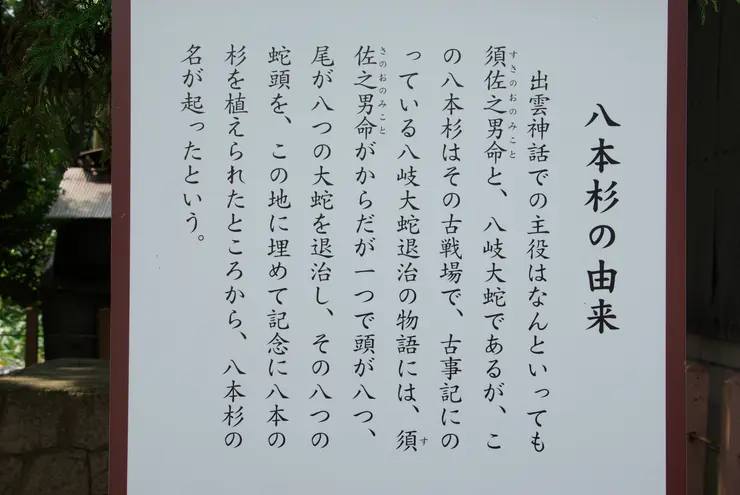 八本杉の由来
出雲神話での主役はなんといっても
須佐之男命と、八岐大蛇であるが、こ
すさのおのみこと
の八本杉はその古戦場で、古事記にの
っている八岐大蛇退治の物語には、須
す
佐之男命がからだが一つで頭が八つ、
さのおのみこと
尾が八つの大蛇を退治し、その八つの
蛇頭を、この地に埋めて記念に八本の
杉を植えられたところから、八本杉の
名が起ったという。